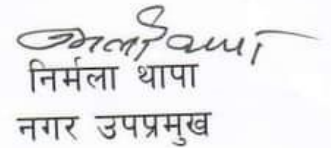 निर्मला थापा
नगर उपप्रमुख